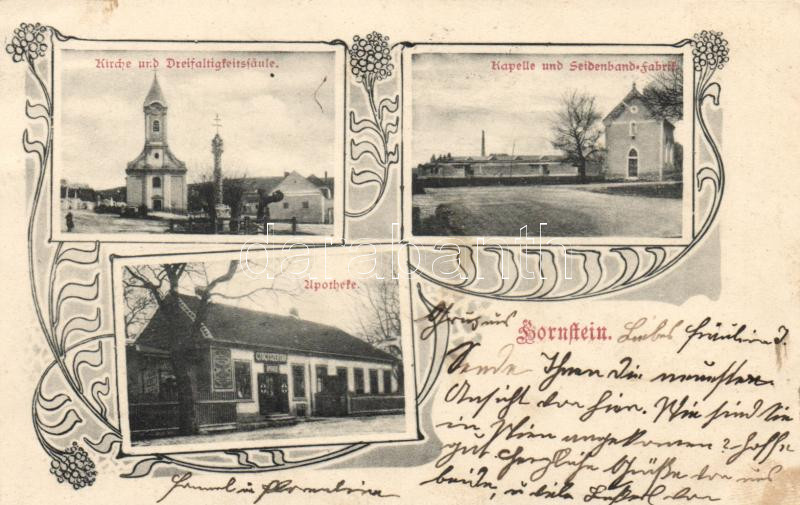 Kirche und Dreifaltigkeitssäule.
Kapelle und Seidenband-Fabrik.
Apotheke.
darabanth
Gruß aus Hornstein. Liebes Fräulein J.
Sende Ihnen die neuesten
Ansicht von hier. Wie sind Sie
in Wien angekommen? Hoffe
gut herzliche Grüße von uns
beide, u. viele von